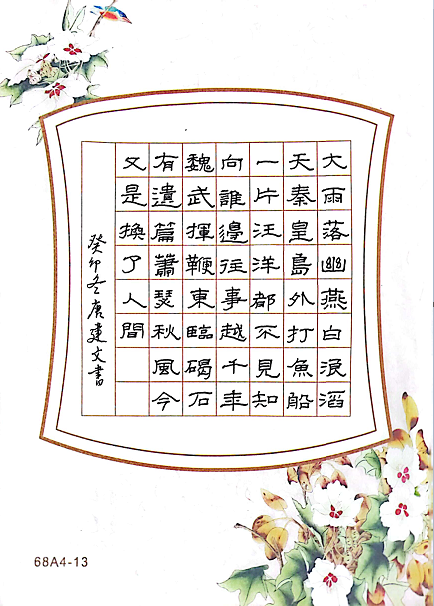 大雨落幽燕白浪滔
天秦皇島外打魚船
一片汪洋都不見知
向誰邊往事越千年
魏武揮鞭東臨碣石
有遺篇蕭瑟秋風今
又是換了人間
癸卯冬唐建文書
68A4-13